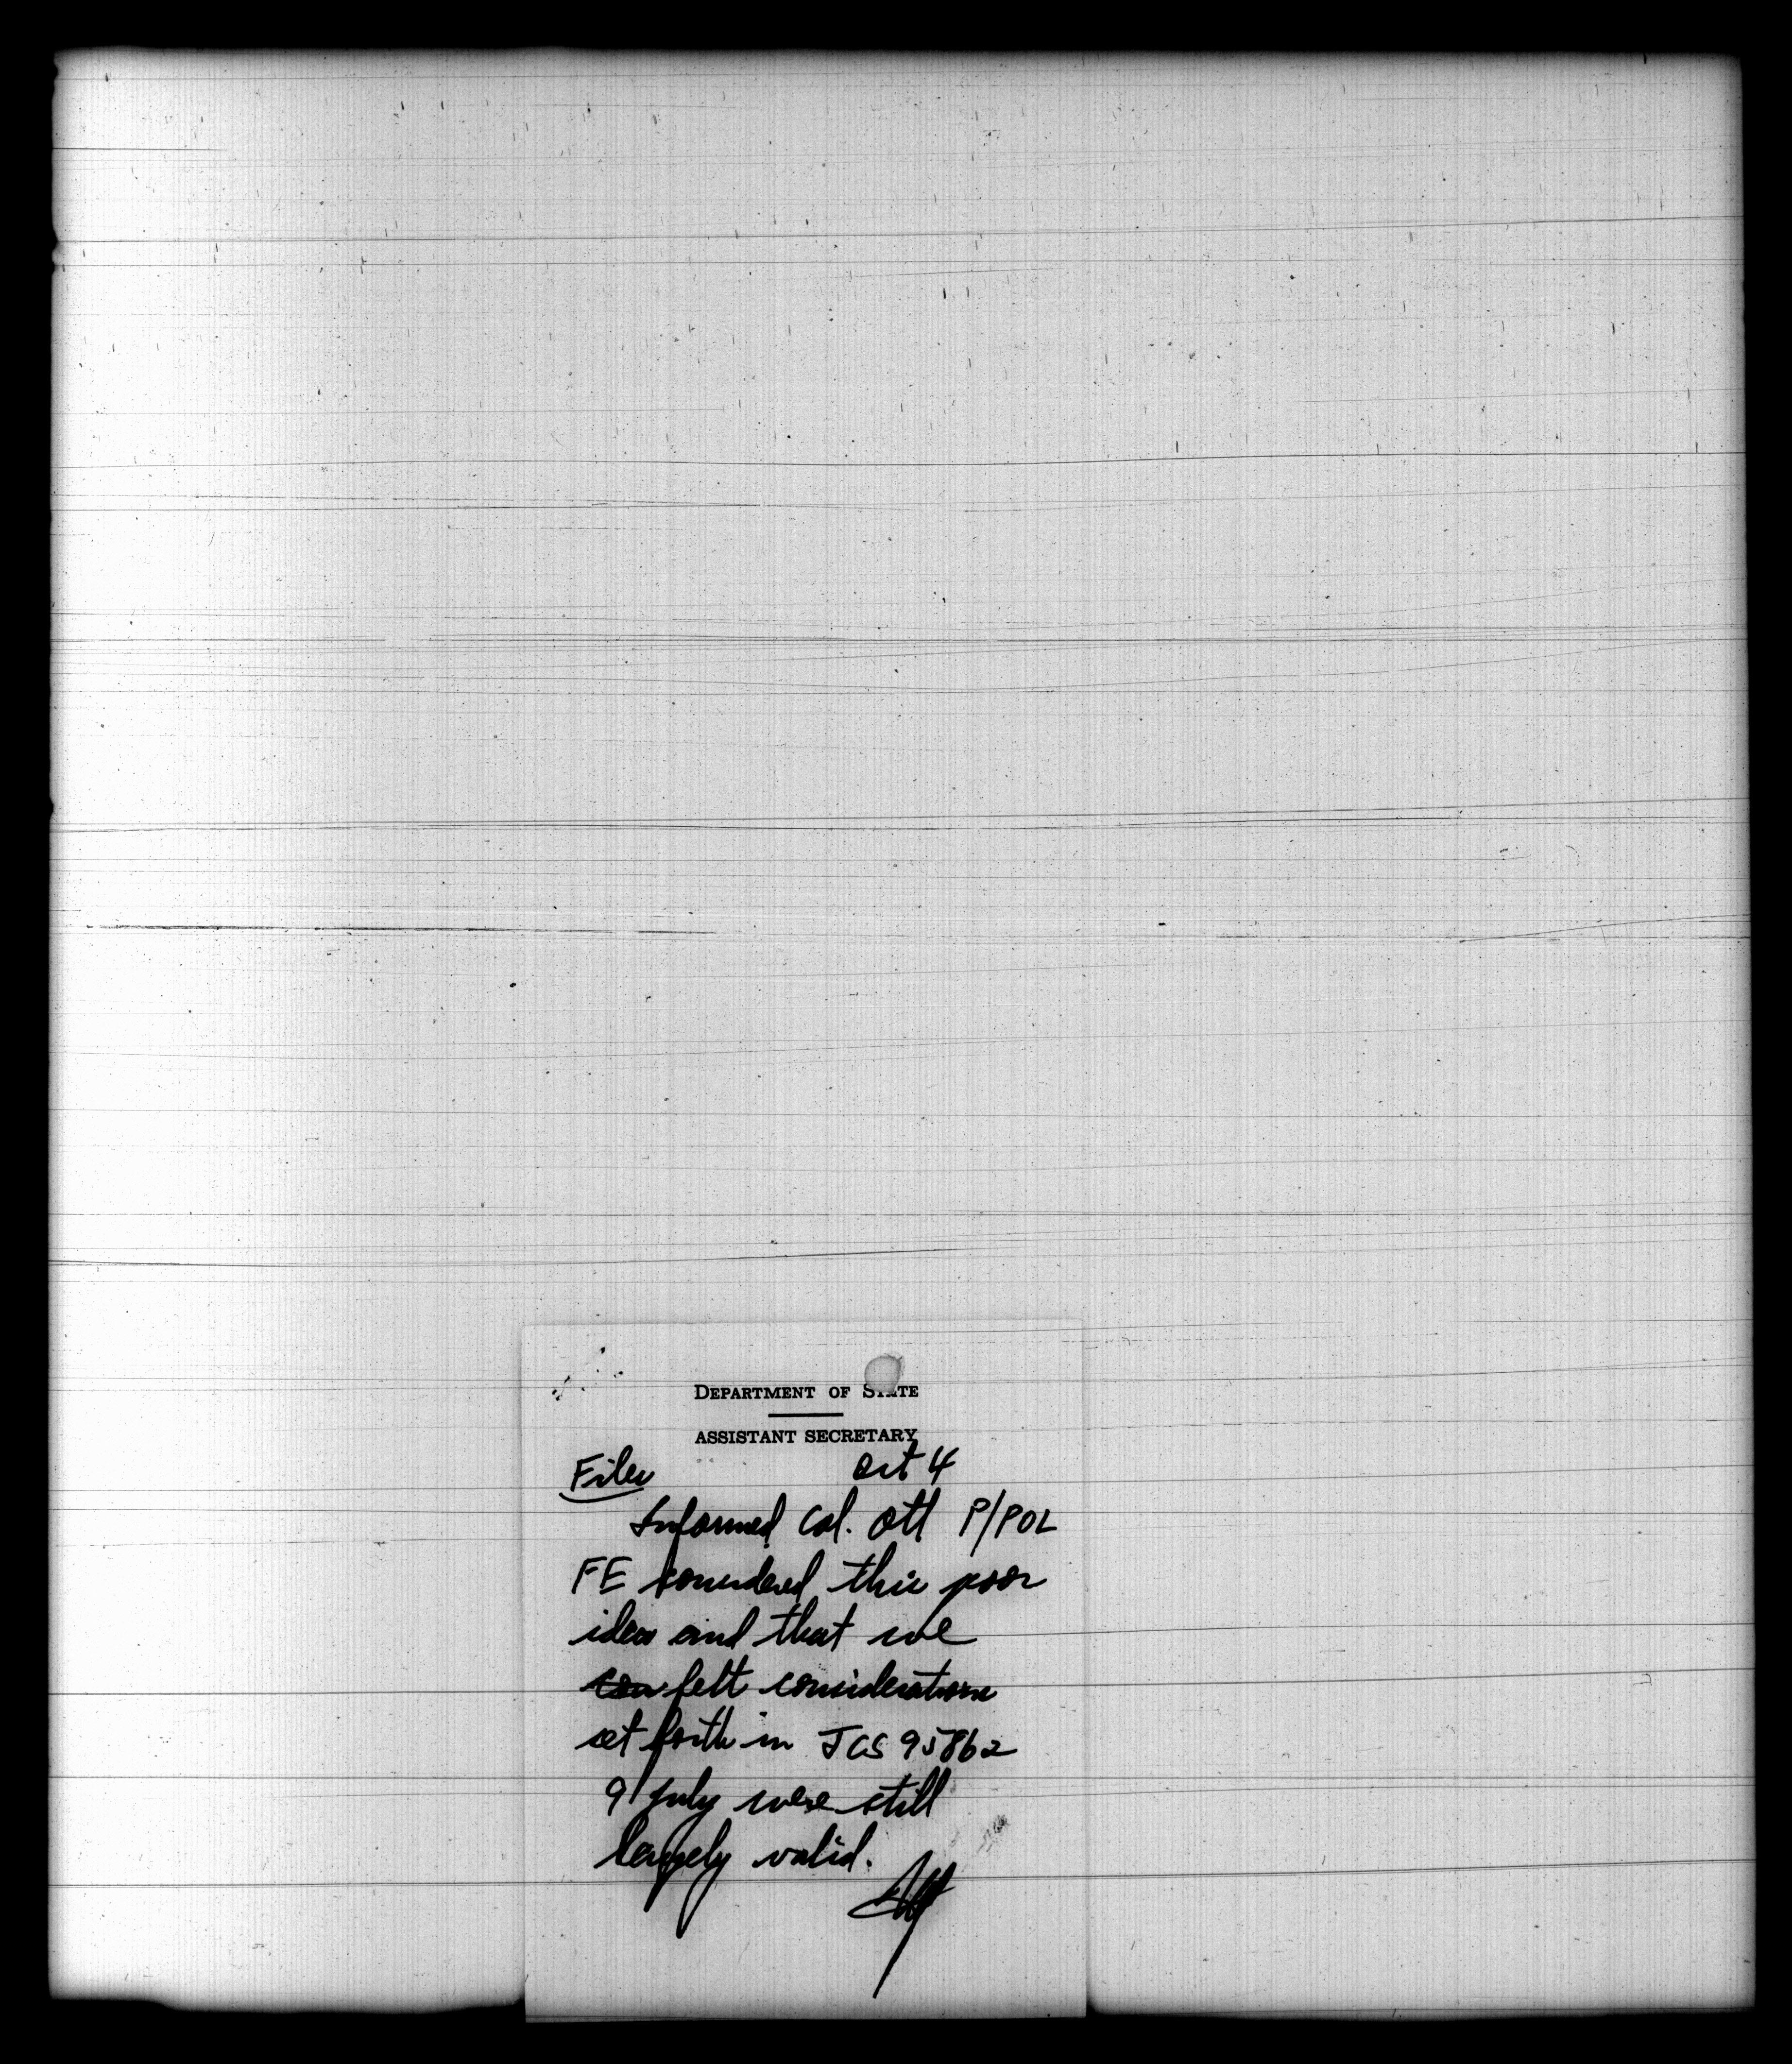 DEPARTMENT OF STATE
ASSISTANT SECRETARY
Files Oct 4
Informed Col. Ott P/POL
FE considered this poor
idea and that we
con felt considerations
set forth in JCS 95862
9 July were still
largely valid.